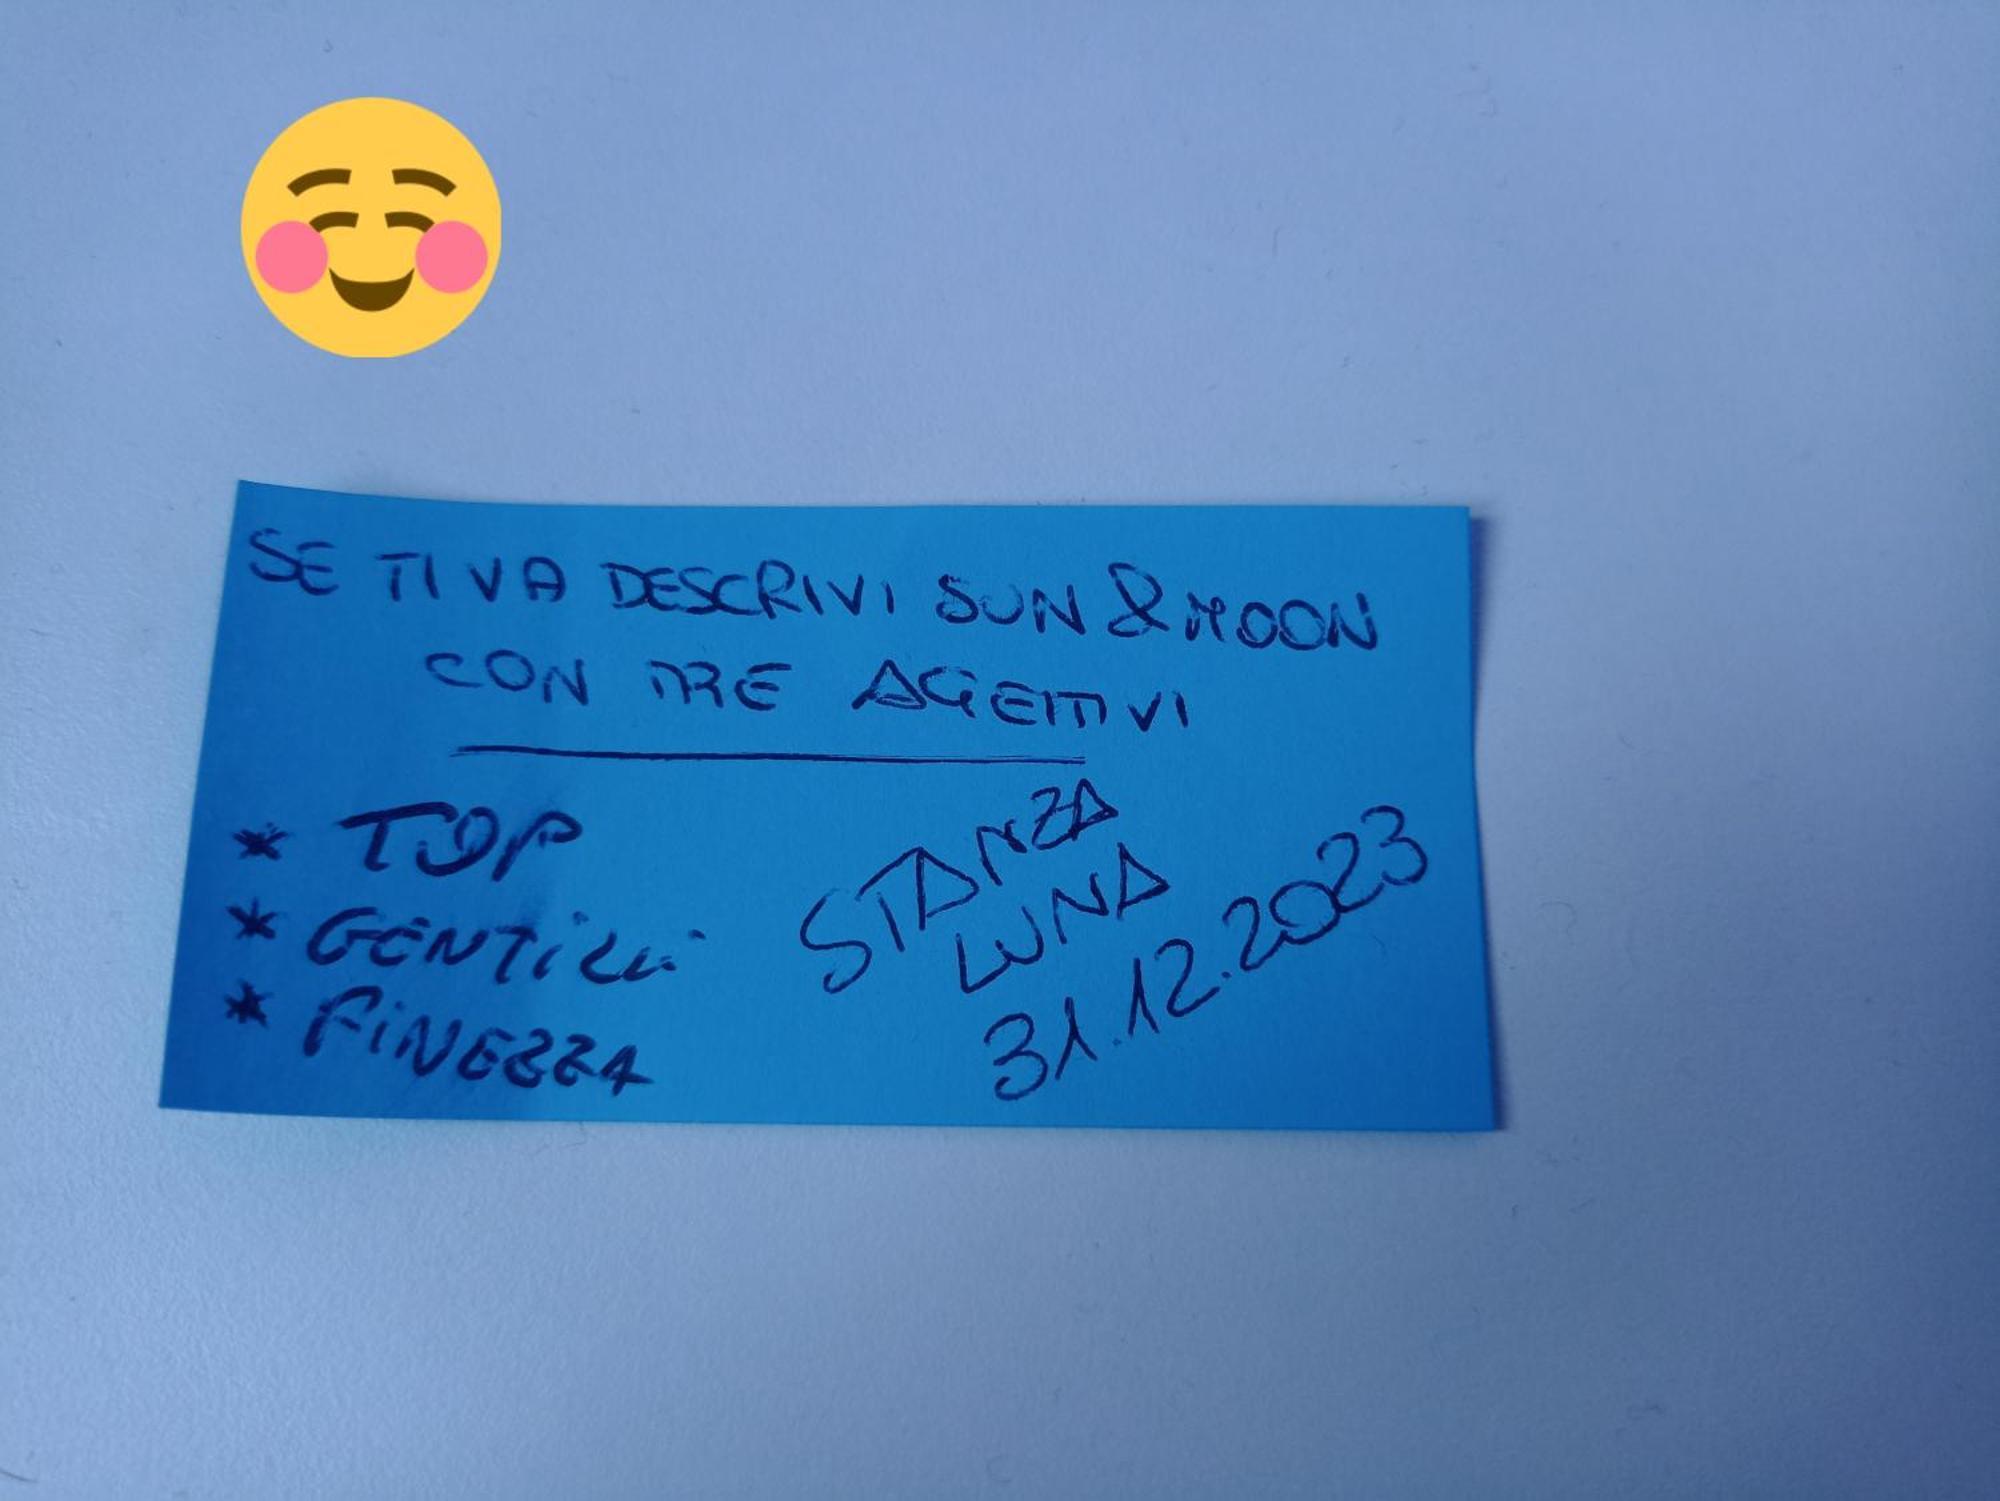 SE TI VA DESCRIVI SUN & MOON
CON TRE AGETTIVI
* TOP
* GENTILI
* FINEZZA
STANZA
LUNA
31.12.2023